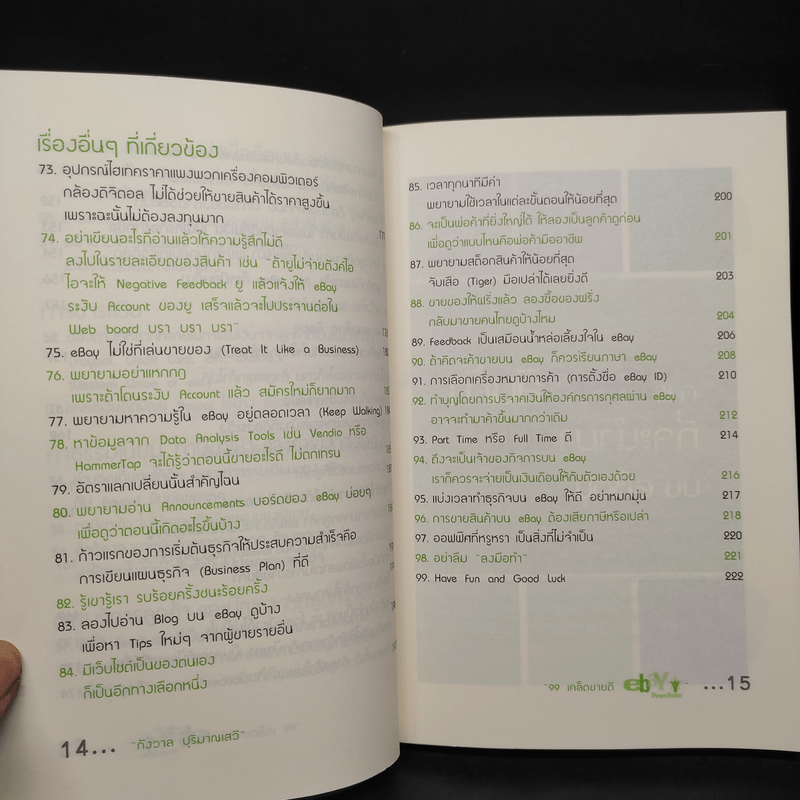 เรื่องอื่นๆ ที่เกี่ยวข้อง
73. อุปกรณ์ไฮเทคราคาแพงพวกเครื่องคอมพิวเตอร์
กล้องดิจิตอล ไม่ได้ช่วยให้ขายสินค้าได้ราคาสูงขึ้น
เพราะฉะนั้นไม่ต้องลงทุนมาก
74. อย่าเขียนอะไรที่อ่านแล้วให้ความรู้สึกไม่ดี
ลงไปในรายละเอียดของสินค้า เช่น "ถ้ายูไม่จ่ายตังค์ไอ
ไอจะให้ Negative Feedback ยู แล้วแจ้งให้ eBay
ระงับ Account ของยู เสร็จแล้วจะไปประจานต่อใน
Web board บรา บรา บรา"
75. eBay ไม่ใช่ที่เล่นขายของ (Treat It Like a Business)
76. พยายามอย่าแหกกฎ
เพราะถ้าโดนระงับ Account แล้ว สมัครใหม่ก็ยากมาก
77. พยายามหาความรู้ใน eBay อยู่ตลอดเวลา (Keep Walking)
78. หาข้อมูลจาก Data Analysis Tools เช่น Vendio หรือ
HammerTap จะได้รู้ว่าตอนนี้ขายอะไรดี ไม่ตกเทรน
79. อัตราแลกเปลี่ยนนั้นสำคัญไฉน
80. พยายามอ่าน Announcements บอร์ดของ eBay บ่อยๆ
เพื่อดูว่าตอนนี้เกิดอะไรขึ้นบ้าง
81. ก้าวแรกของการเริ่มต้นธุรกิจให้ประสบความสำเร็จคือ
การเขียนแผนธุรกิจ (Business Plan) ที่ดี
82. รู้เขารู้เรา รบร้อยครั้งชนะร้อยครั้ง
83. ลองไปอ่าน Blog บน eBay ดูบ้าง
เพื่อหา Tips ใหม่ๆ จากผู้ขายรายอื่น
84. มีเว็บไซต์เป็นของตนเอง
ก็เป็นอีกทางเลือกหนึ่ง
14... "กังวาล ปุริมาณเสวี"
85. เวลาทุกนาทีมีค่า
พยายามใช้เวลาในแต่ละขั้นตอนให้น้อยที่สุด 200
86. จะเป็นพ่อค้าที่ยิ่งใหญ่ได้ ให้ลองเป็นลูกค้าดูก่อน
เพื่อดูว่าแบบไหนคือพ่อค้ามืออาชีพ 201
87. พยายามสต็อกสินค้าให้น้อยที่สุด
จับเสือ (Tiger) มือเปล่าได้เลยยิ่งดี 203
88. ขายของให้ฝรั่งแล้ว ลองซื้อของฝรั่ง
กลับมาขายคนไทยดูบ้างไหม 204
89. Feedback เป็นเสมือนน้ำหล่อเลี้ยงใจใน eBay 206
90. ถ้าคิดจะค้าขายบน eBay ก็ควรเรียนภาษา eBay 208
91. การเลือกเครื่องหมายการค้า (การตั้งชื่อ eBay ID) 210
92. ทำบุญโดยการบริจาคเงินให้องค์กรการกุศลผ่าน eBay
อาจจะทำมาค้าขึ้นมากกว่าเดิม 212
93. Part Time หรือ Full Time ดี 214
94. ถึงจะเป็นเจ้าของกิจการบน eBay
เราก็ควรจะจ่ายเป็นเงินเดือนให้กับตัวเองด้วย 216
95. แบ่งเวลาทำธุรกิจบน eBay ให้ดี อย่าหมกมุ่น 217
96. การขายสินค้าบน eBay ต้องเสียภาษีหรือเปล่า 218
97. ออฟฟิศที่หรูหรา เป็นสิ่งที่ไม่จำเป็น 220
98. อย่าลืม "ลงมือทำ" 221
99. Have Fun and Good Luck 222
"99 เคล็ดขายดี ebay" ...15